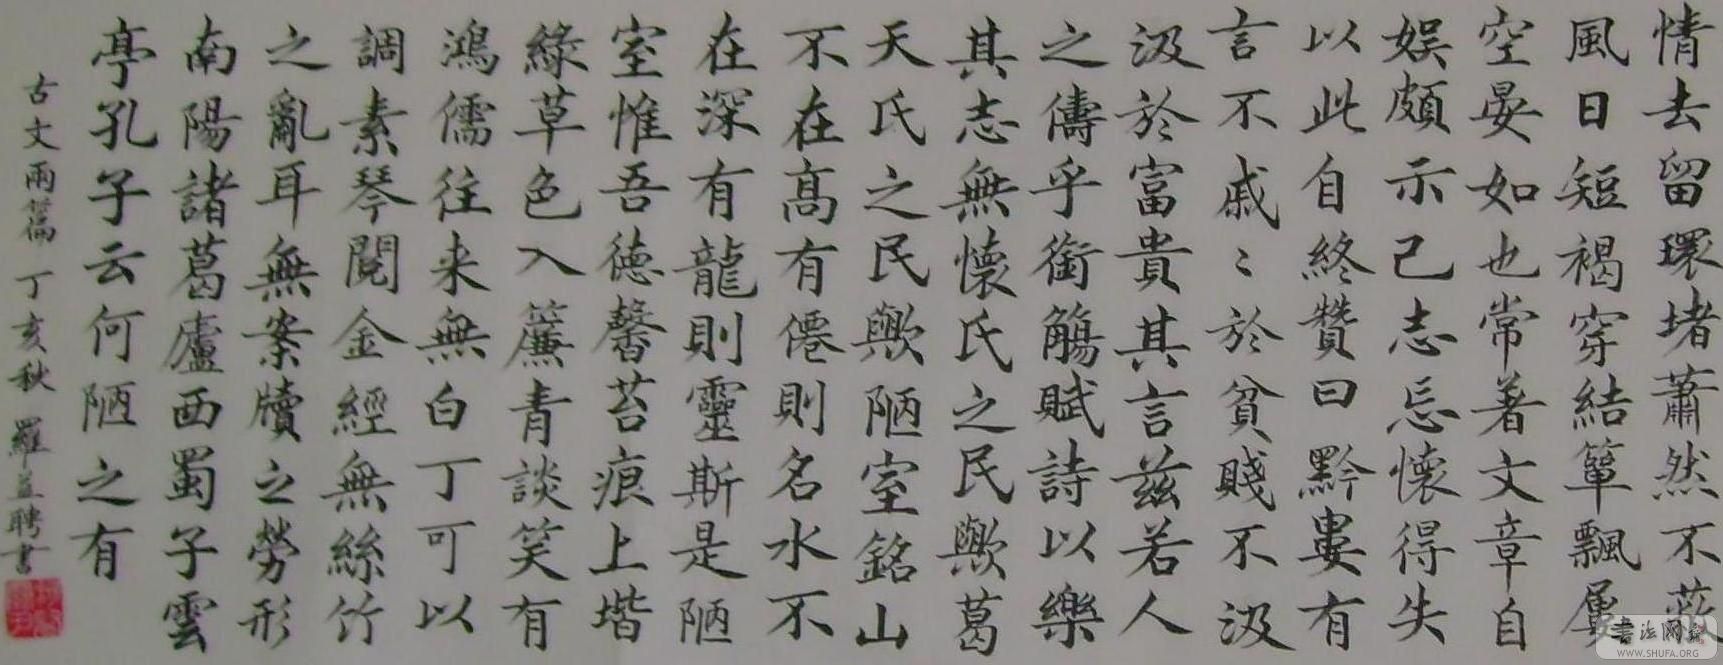 情去留環堵蕭然不蔽
風日短褐穿結簞飄屢
空晏如也常著文章自
娱頗示己志忘懷得失
以此自終贊曰黔婁有
言不戚〻於貧賤不汲
汲於富貴其言兹若人
之儔乎銜觴賦詩以樂
其志無懷氏之民歟葛
天氏之民歟陋室銘山
不在髙有僊則名水不
在深有龍則靈斯是陋
室惟吾德馨苔痕上堦
綠草色入簾青談笑有
鴻儒往来無白丁可以
調素琴閱金經無絲竹
之亂耳無案牘之勞形
南陽諸葛廬西蜀子雲
亭孔子云何陋之有
古文兩篇丁亥秋羅益聘書
书法网
WWW.SHUFA.ORG